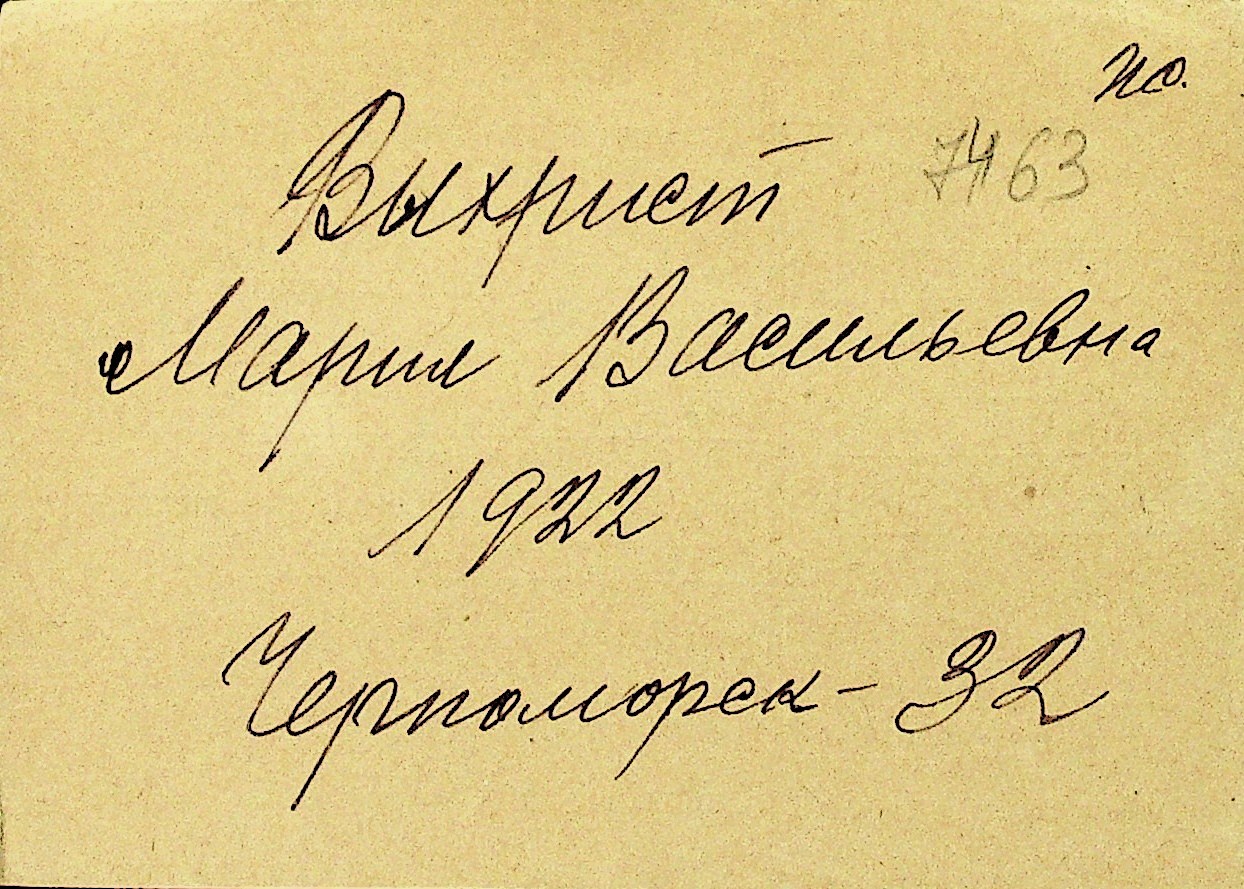 7463
Выхрист
Мария Васильевна
1922
Черноморск - 32